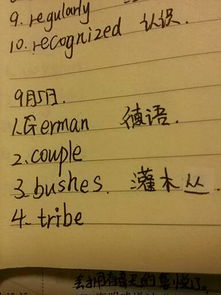 9. regularly
10. recognized 认识.
9月5日.
1. German 德语.
2. couple
3. bushes. 灌木丛
4. tribe